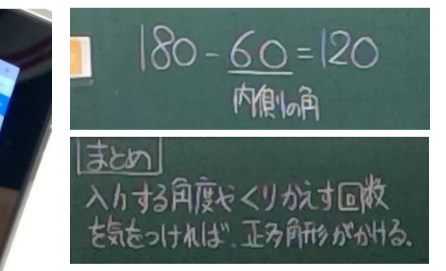 180-60=120
内側の角
まとめ
入力する角度やくりかえす回数
を気をつければ、正多角形がかける。